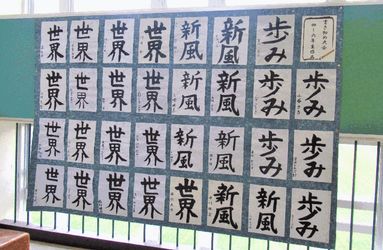 書き初め大会
四〜六年生作品
歩み
新風
新風
世界
世界
世界
世界
歩み
歩み
新風
新風
世界
世界
世界
世界
歩み
歩み
新風
新風
世界
世界
世界
世界
歩み
新風
新風
世界
世界
世界
世界
世界